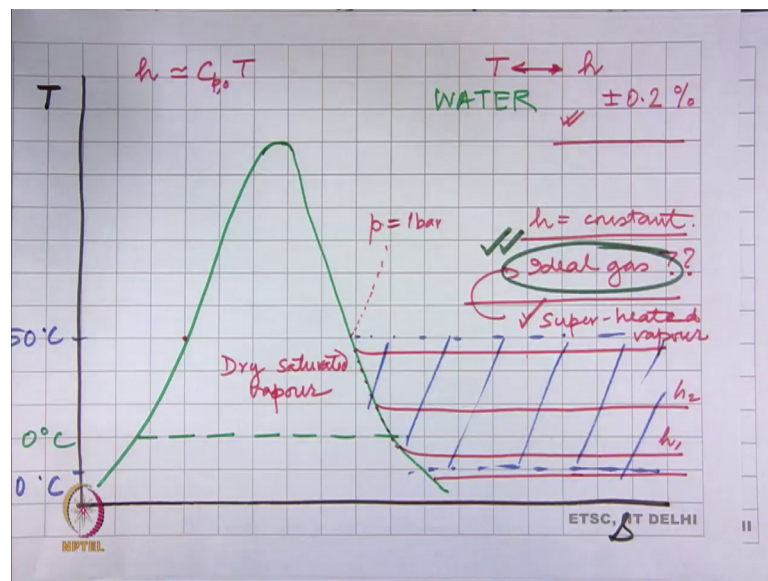 h ≃ Cp,o T
T ↔ h
T
WATER
± 0.2 %
p = 1 bar
h = constant.
Ideal gas ??
super-heated
vapour
50°C
Dry saturated
vapour
h₂
0°C
h₁
0°C
ETSC, IIT DELHI
s
NPTEL